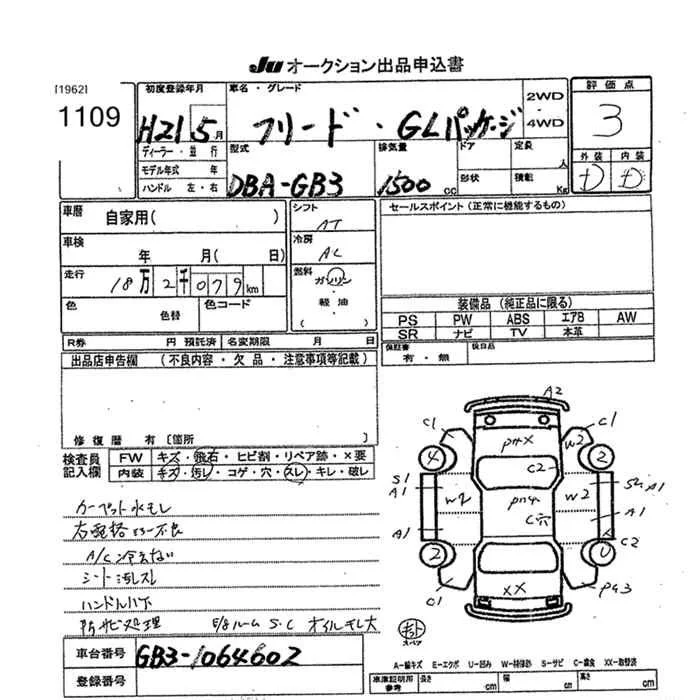 Ju オークション出品申込書
[1962]
1109
初度登録年月
H21 5月
車名・グレード
フリード・GLパッケージ
2WD
・
4WD
評価点
3
ディーラー・並行
モデル年式 年
ハンドル 左・右
型式
DBA-GB3
排気量
1500 cc
ドア
定員
人
形状
積載
Kg
外装 内装
D D
車歴
自家用( )
シフト
AT
セールスポイント(正常に機能するもの)
車検
年 月( 日)
冷房
AC
走行
18万2千079km
燃料
ガソリン
・
軽油
( )
色
色替
色コード
装備品(純正品に限る)
PS PW ABS エアB AW
SR ナビ TV 本革
R券 円 預託済 名変期限 月 日
保証書
有・無
後日品
出品店申告欄 (不良内容・欠品・注意事項等記載)
修復歴 有〔箇所 〕
検査員
記入欄
FW キズ・飛石・ヒビ割・リペア跡・×要
内装 キズ・汚レ・コゲ・穴・スレ・キレ・破レ
カーペット水モレ
A/C冷えない
シート汚レスレ
防サビ処理 E/gルーム S・C オイルモレ大
A2
C1 C1
4 W2 2
PHX
C2
S1
A1
W2
W2
A1
A1
A1
C穴
C2
2
C1
XX
スペア
車台番号
GB3-1064602
登録番号
A-線キズ E-エクボ U-凹み W-補修跡 S-サビ C-腐食 XX-取替済
車庫証明用
参考
長さ cm
幅 cm
高さ cm